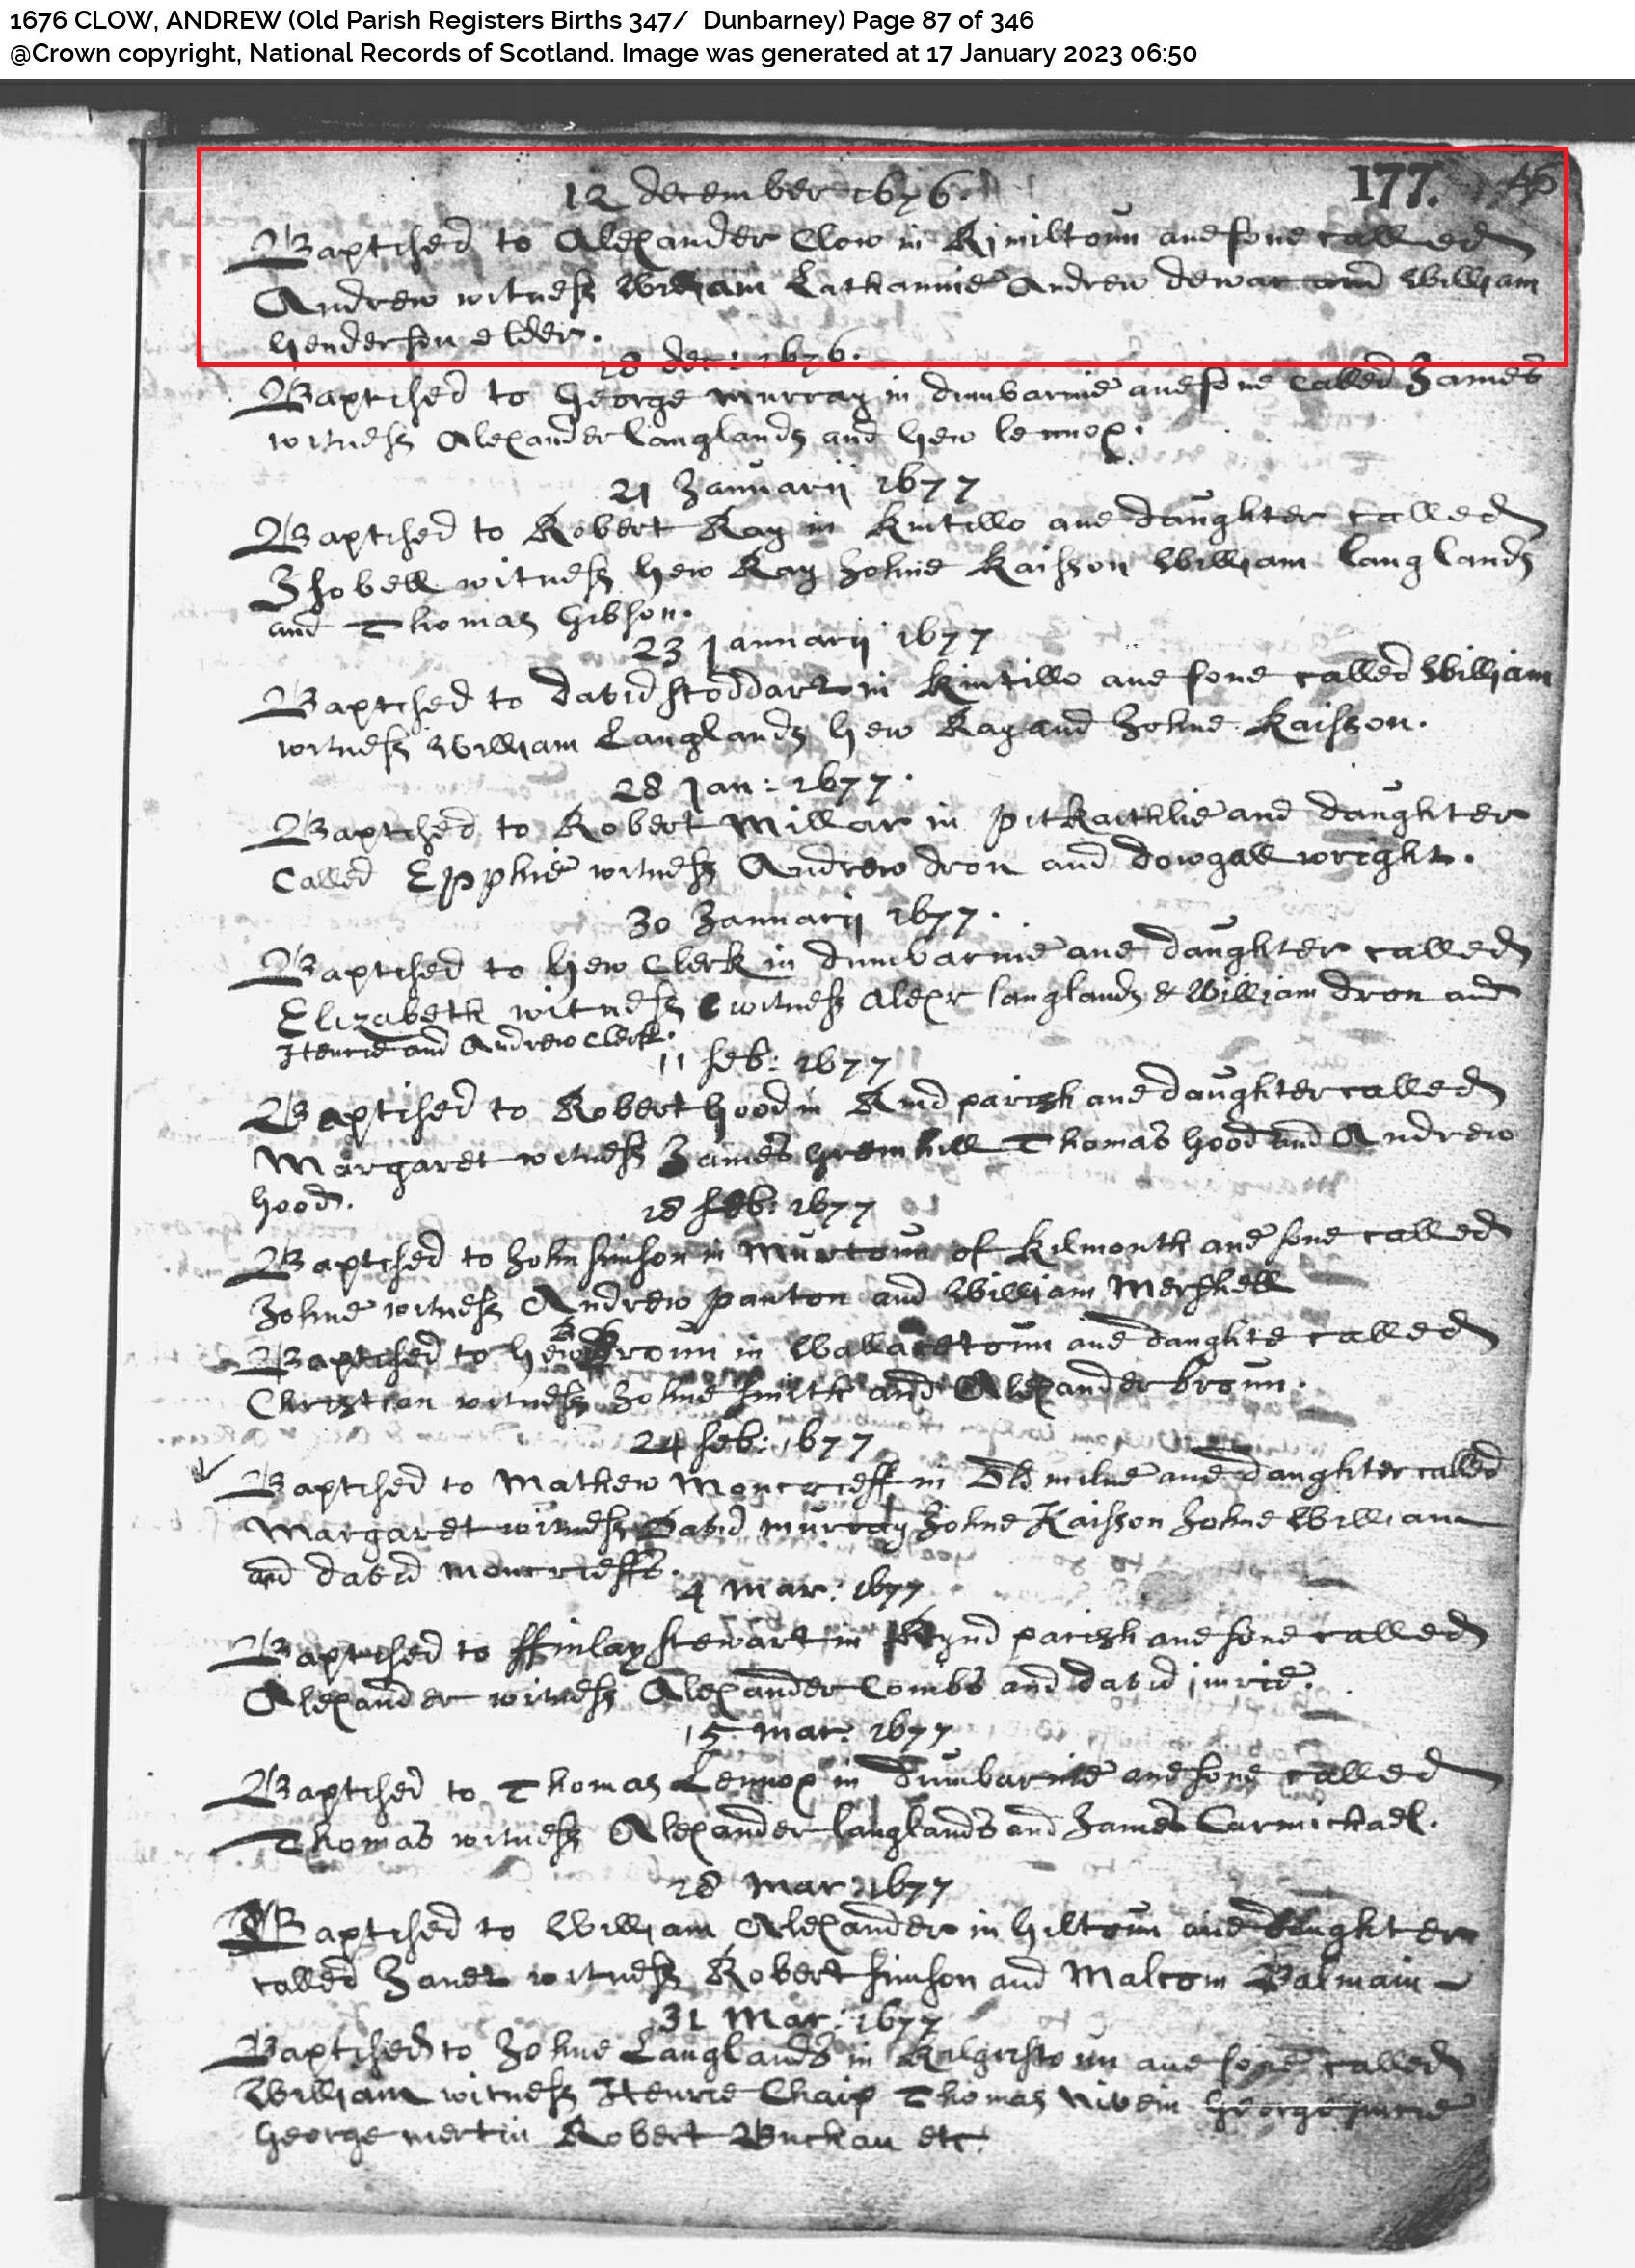 1676 CLOW, ANDREW (Old Parish Registers Births 347/ Dunbarney) Page 87 of 346
@Crown copyright, National Records of Scotland. Image was generated at 17 January 2023 06:50
12 december 1676. 177. 45
Baptised to Alexander Clow in Kimiltoun ane sone called
Andrew witness William Lathannie Andrew dewar and William
henderson elder.
18 dec: 1676.
Baptised to George murray in dunbarnie ane sone called James
witness Alexander langlands and hew lennox.
21 Januarij 1677
Baptised to Robert Kay in Kintillo ane daughter called
Isobell witness hew Kay Johne Kaisson William langlands
and Thomas Gibson.
23 Januarij 1677
Baptised to david stoddart in Kintillo ane sone called William
witness William Langlands hew Kay and Johne Kaisson.
28 Jan: 1677.
Baptised to Robert Millar in pitkaithlie and daughter
called Epphie witness Andrew dron and dowgall wright.
30 Januarij 1677.
Baptised to hew Clerk in dunbarnie ane daughter called
Elizabeth witness witness Alexr langlands & William dron and
Henrie and Andrew Clerk.
11 feb: 1677
Baptised to Robert hood in Rind parish ane daughter called
Margaret witness James Thomas hood and Andrew
hood.
18 feb: 1677
Baptised to John Simson in Murtoun of Kilmonth ane sone called
Johne witness Andrew panton and William Mershell
Baptised to hew Broun in Wallacetoun ane daughte called
Christian witness Johne Smith and Alexander broun.
24 feb: 1677
Baptised to Mathew Moncrieff in Old milne ane daughter called
Margaret witness David murray Johne Kaisson Johne William
and david moncrieffs.
4 Mar: 1677
Baptised to ffinlay stewart in Rynd parish ane sone called
Alexander witness Alexander Combs and david imrie.
15 Mar: 1677
Baptised to Thomas Lennox in Dumbarnie ane sone called
Thomas witness Alexander langlands and James Carmichael.
28 Mar: 1677
Baptised to William Alexander in hiltoun ane daughter
called Janet witness Robert simson and Malcom Balmain
31 Mar: 1677
Baptised to Johne Langlands in Kilgristoun ane sone called
William witness Henrie Chaip Thomas Nivein George imrie
George mertin Robert Buchan etc.